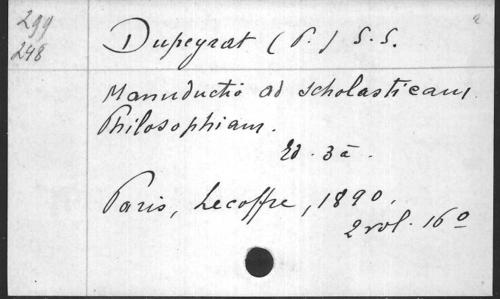 299
248
Dupeyrat (P.) S.S.
Manuductio ad scholasticam
Philosophiam.
Ed. 3a.
Paris, Lecoffre, 1890.
2 vol. 16o